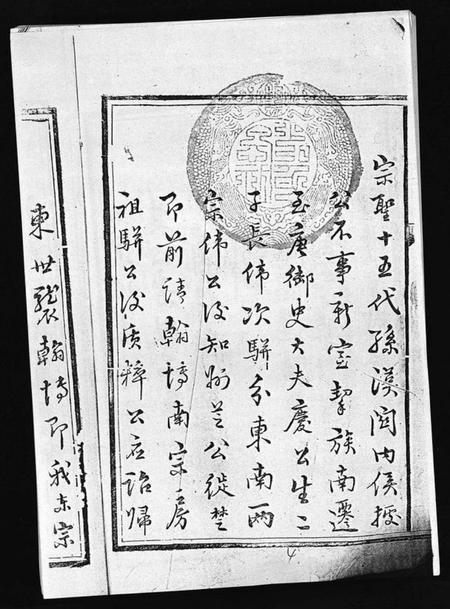 宗聖十五代孫漢関内侯據
公不事新室挈族南遷
至唐御史大夫慶公生二
子長偉次駢分東南兩
宗偉公後知州芝公徙楚
即前請翰博南宗房
祖駢公後質粹公应詔歸
東世襲翰博即我東宗